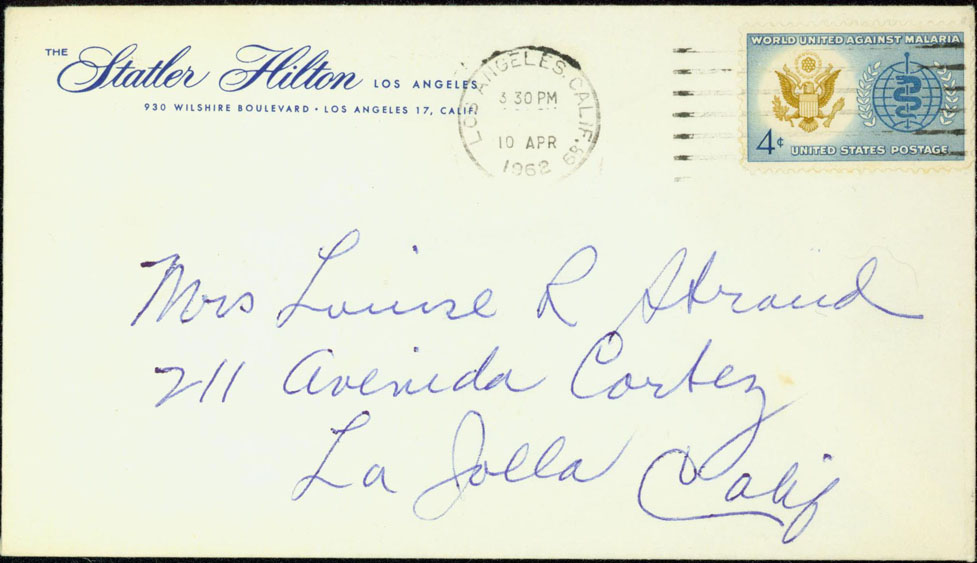 THE Statler Hilton LOS ANGELES
930 WILSHIRE BOULEVARD · LOS ANGELES 17, CALIF.
LOS ANGELES, CALIF. 68
3 30 PM
10 APR
1962
WORLD UNITED AGAINST MALARIA
4¢
UNITED STATES POSTAGE
Mrs Louise R Strand
211 Avenida Cortez
La Jolla Calif